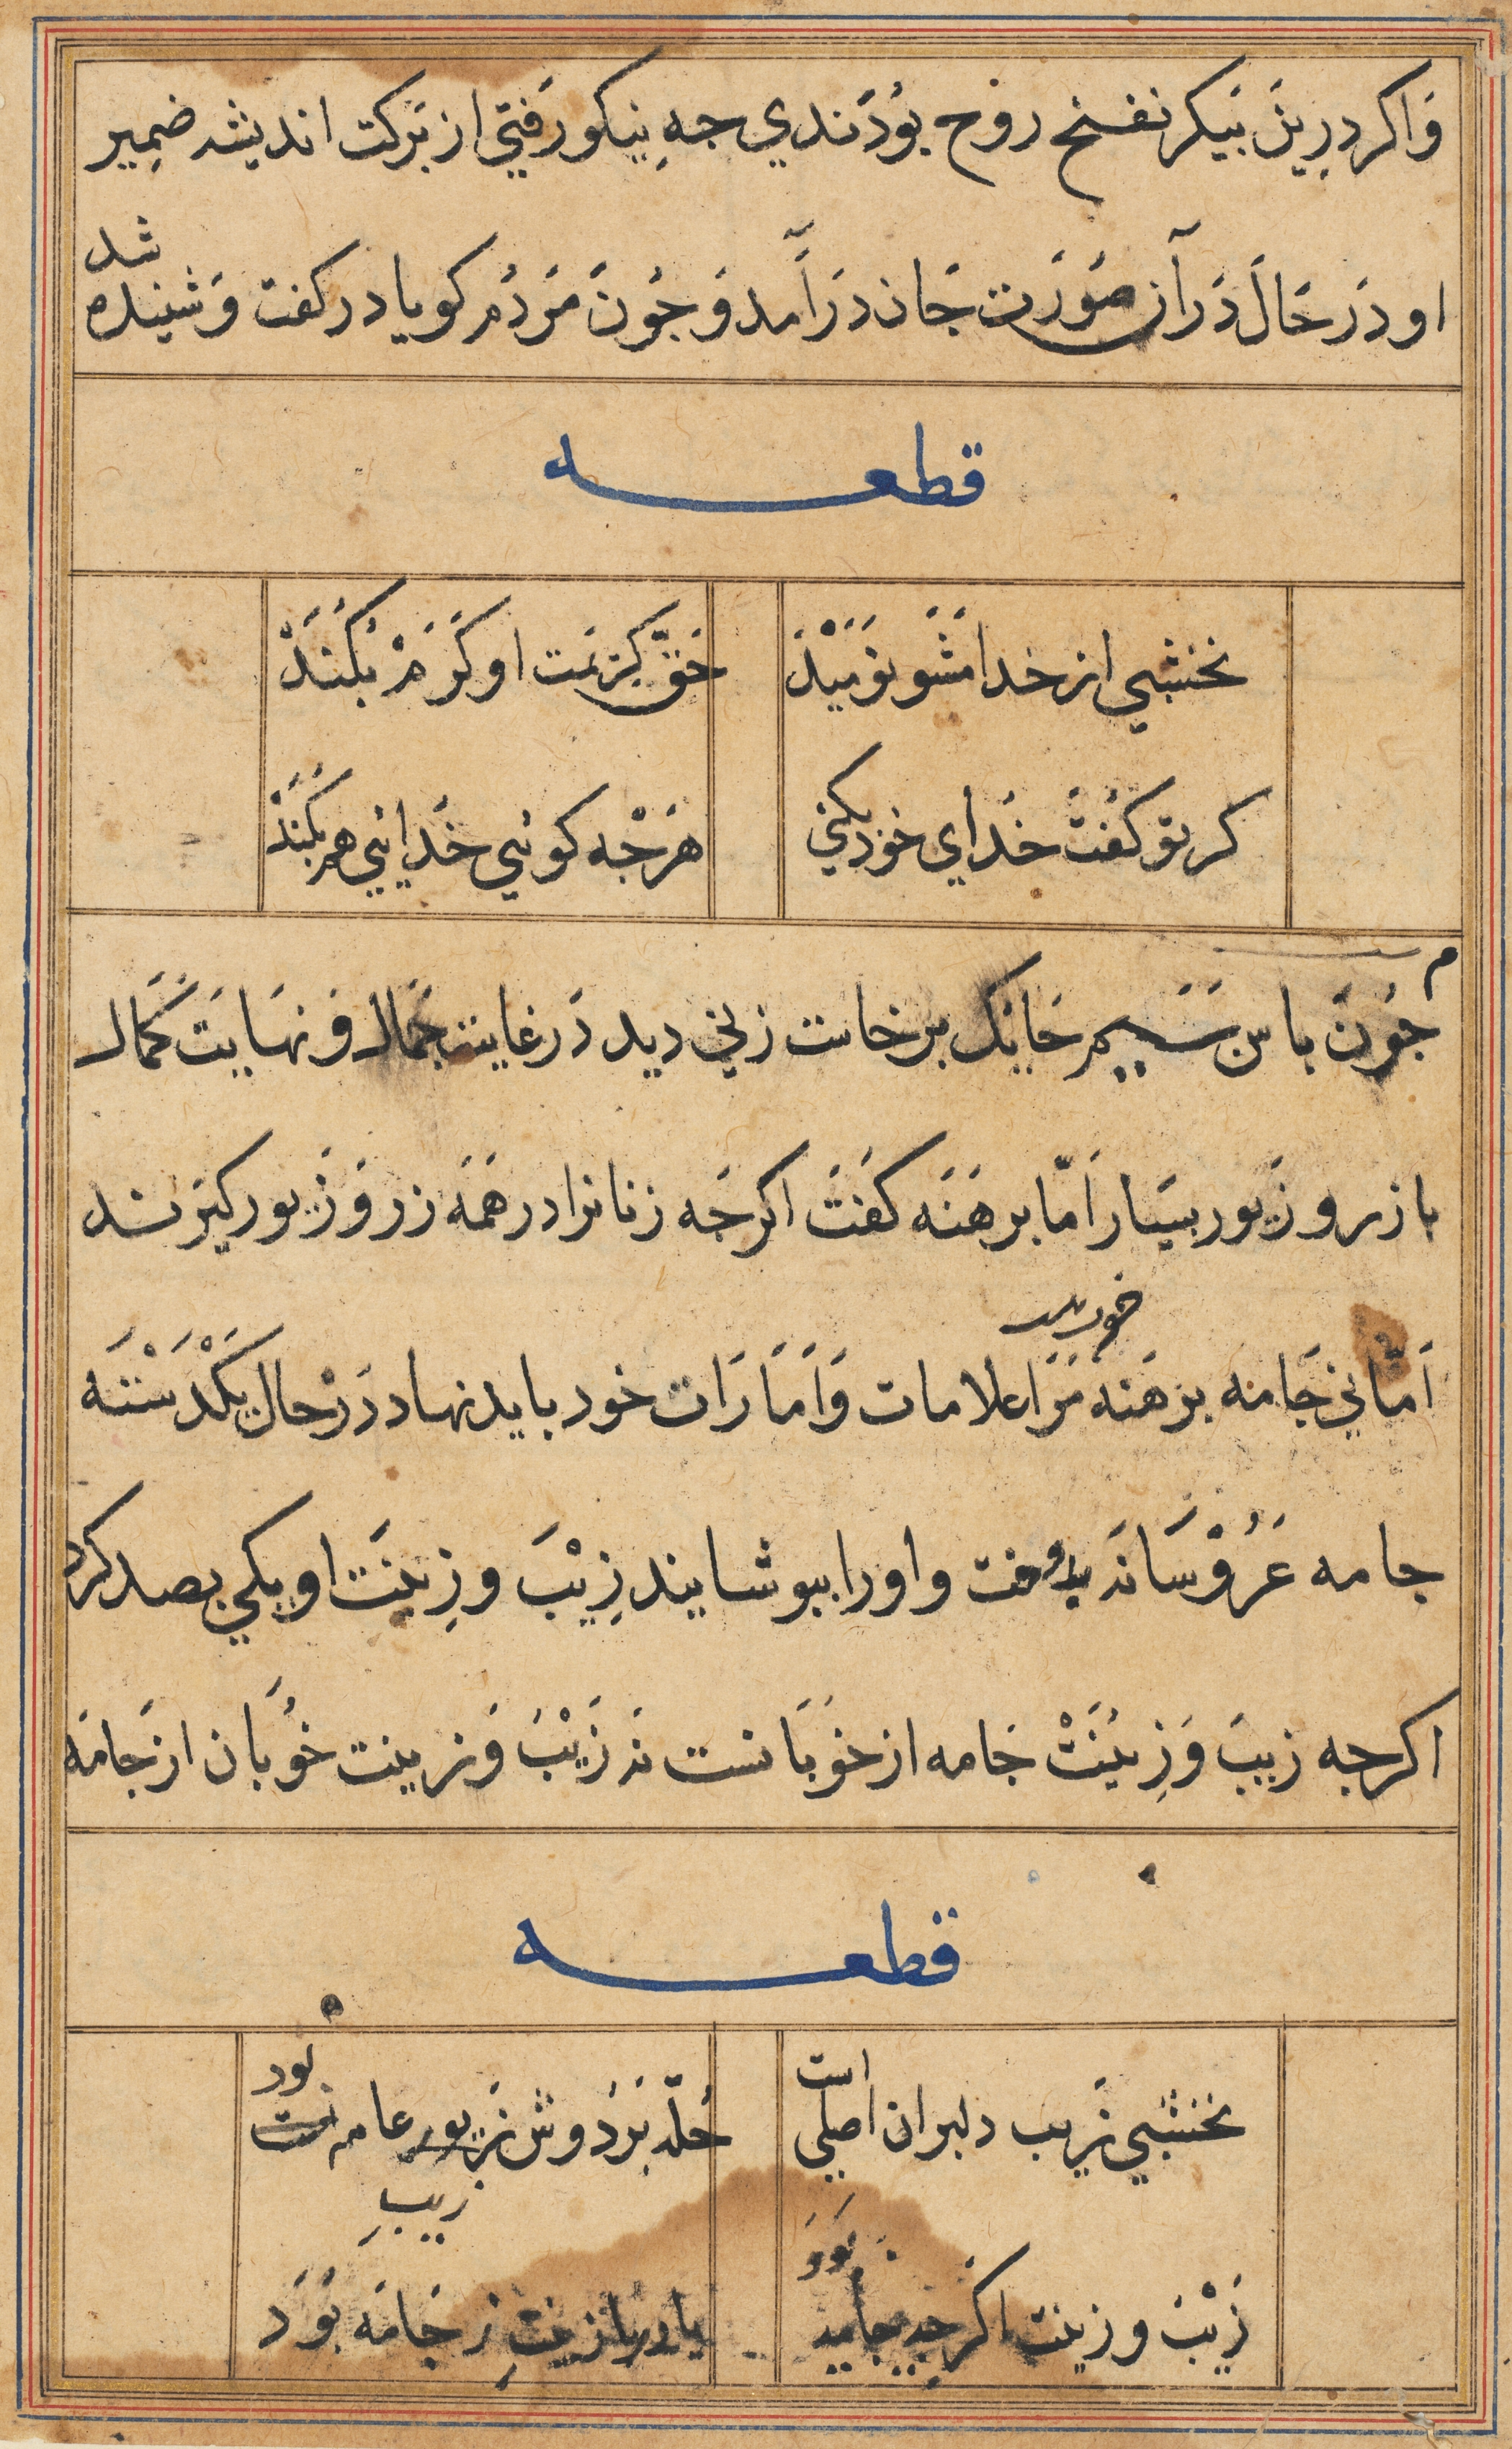 وَاکر درِین بَیکر نفخ روح بُودَندي جهِ نیکو رَفتي از بَرکت اندیشه ضمِیر
شد
او دَرحَال دَرآن صَورَت جَان دَرآمد وَ جُونَ مَردُم کویا در کفت وَ شینده
قطعه
نخشبي از خدا مَشَو نوَمَیْذ
حَقّ کرَمَت او کَرَمْ بکُنَدْ
کر تو کفتَ خدَاي خود بکني
هَرْجْه کوئي خدَایئي هم بکُنَدْ
م
جُونَ باس سَیم حَایک برخاست زني دید دَر غایت جَمال وَ نهَایَت کَمَال
با زر و زَیور بسیَار اَمّا برهَنَه کفتَ اکرجَه زنانرا در هَمَه زر وَ زَیور کیَرند
خود پس
اَمّا ني جَامه برهَنه مَرَا علامات وَاَمَارَات خود باید نهاد دَرْحال یَکْدَسْتَه
جامه عَرُوْسَانَه بدوخت و اورا ببوشایند زِیْبَ و زِینَت او یکي بصد کرد
اکرجه زیبَ وَ زِینَتْ جَامه از خوَبَانست نَه زَیْبَ وَ زینت خوُبَان از جَامَه
قطعه
است
بود
نخشبي زَیب دلبران اصلي
حُلّه بَردوش زیور عام
زیبِ
بَوَد
زَیْبَ و زینت اکرجه بجامه
زینتِ ز جَامَه بَوَد